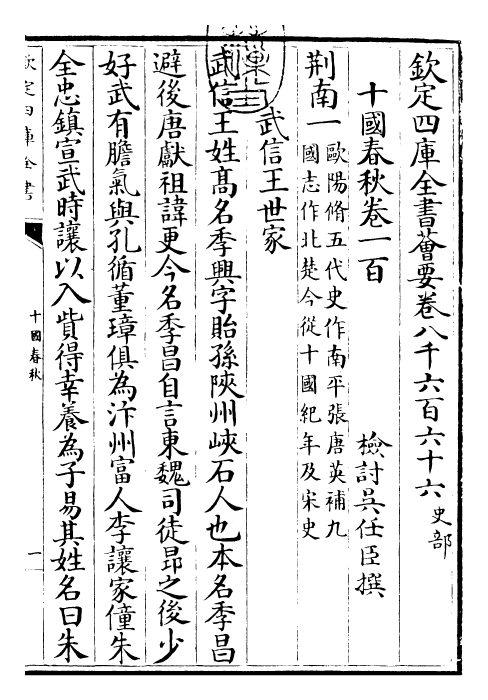 欽定四庫全書薈要卷八千六百六十六 史部
十國春秋卷一百
檢討吳任臣撰
荆南一 歐陽脩五代史作南平張唐英補九
國志作北楚今從十國紀年及宋史
武信王世家
武信王姓高名季興字貽孫陜州峽石人也本名季昌
避後唐獻祖諱更今名季昌自言東魏司徒昂之後少
好武有膽氣與孔循董璋俱為汴州富人李讓家僮朱
全忠鎮宣武時讓以入貲得幸養為子易其姓名曰朱
欽定四庫全書
十國春秋
一